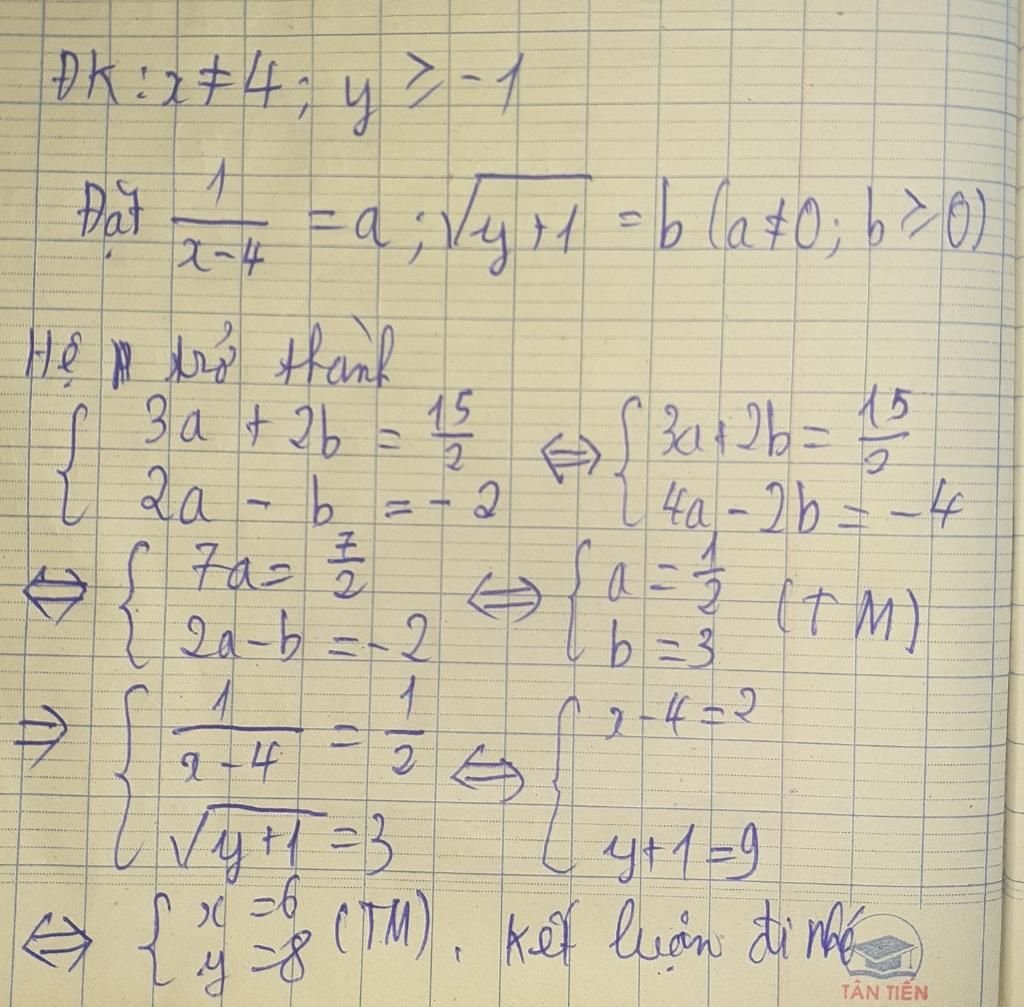 ĐK: x ≠ 4; y ≥ -1
Đặt 1/(x-4) = a; √(y+1) = b (a ≠ 0; b ≥ 0)
Hệ trở thành
{ 3a + 2b = 15/2 ; 2a - b = -2 ⇔ { 3a + 2b = 15/2 ; 4a - 2b = -4
⇔ { 7a = 7/2 ; 2a - b = -2 ⇔ { a = 1/2 ; b = 3 (TM)
⇒ { 1/(x-4) = 1/2 ; √(y+1) = 3 ⇔ { x - 4 = 2 ; y + 1 = 9
⇔ { x = 6 ; y = 8 (TM). Kết luận đi nhé
TÂN TIẾN